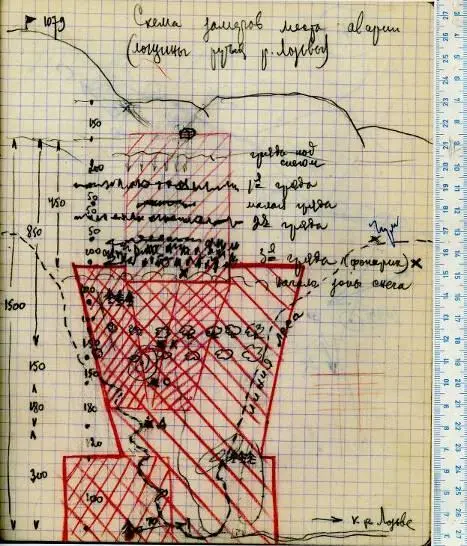 1079
Схема замеров места аварии
(лощины ручья р. Лозьвы)
150
200
гряда под
снегом
1я гряда
450
50
малая гряда
50
2я гряда
850
50
100
3я гряда (фонарик)
начала зоны снега
1500
линия леса
150
150
180
180
120
300
100
70
к р. Лозьве